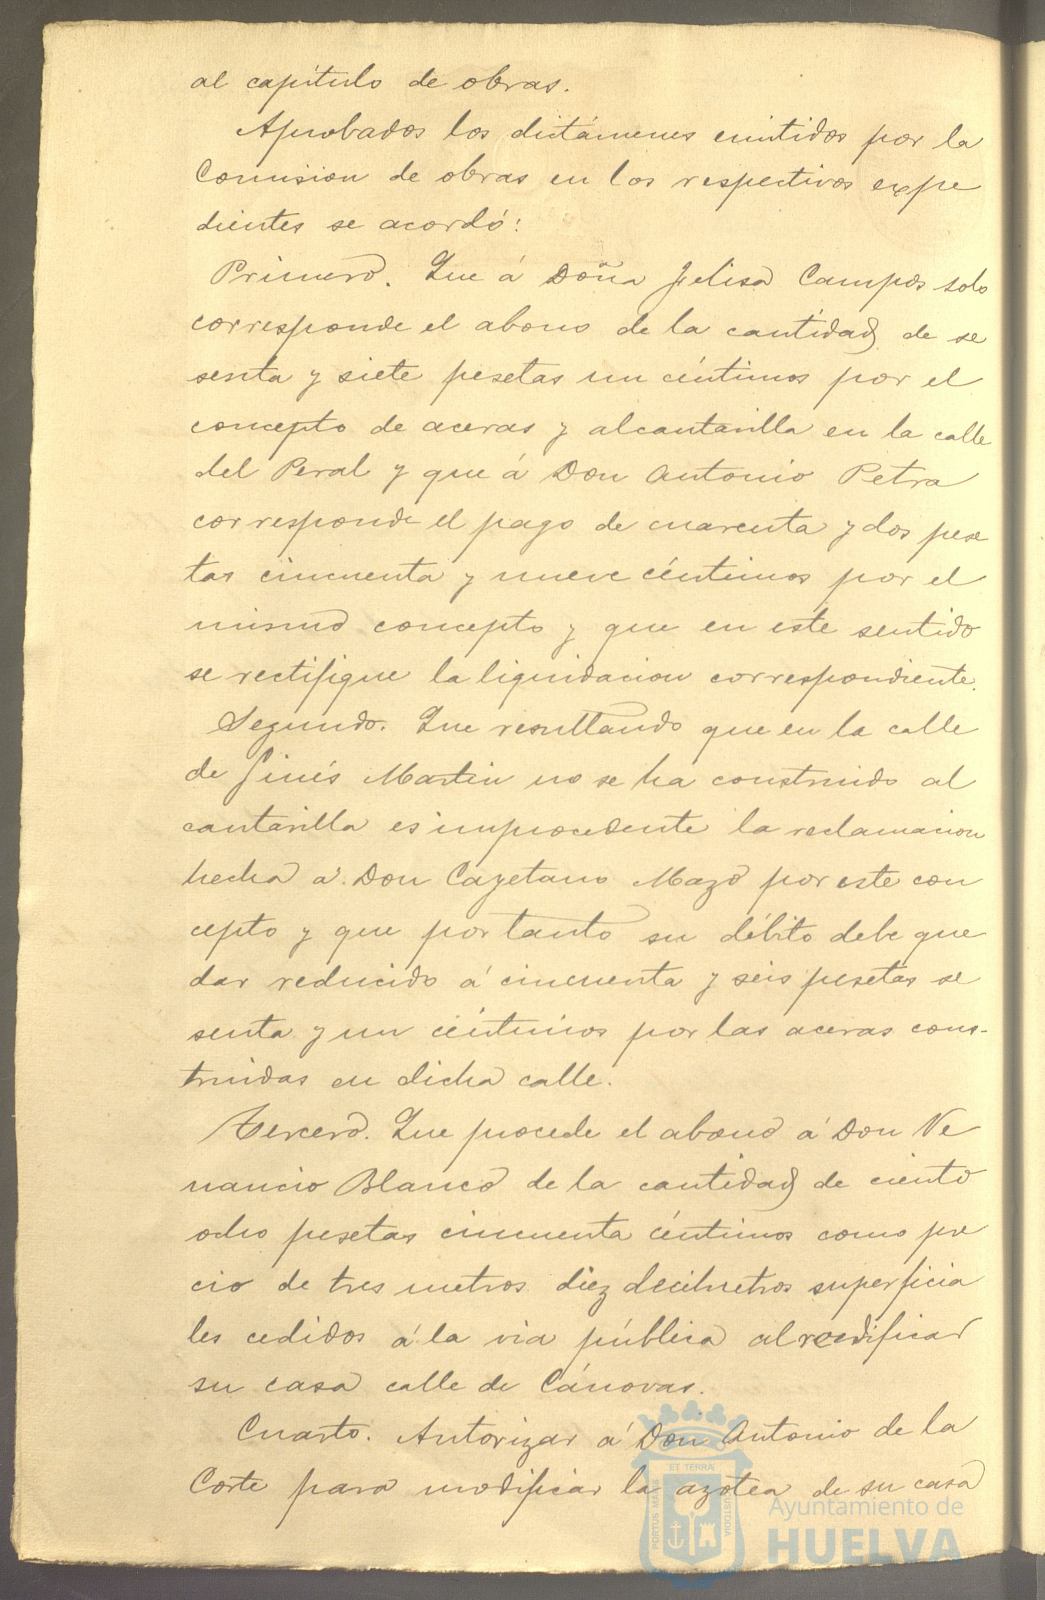 al capítulo de obras.
Aprobados los dictámenes emitidos por la
Comision de obras en los respectivos expe
dientes se acordó:
Primero. Que á Doña Felisa Campos solo
corresponde el abono de la cantidad de se
senta y siete pesetas un céntimos por el
concepto de aceras y alcantarilla en la calle
del Peral y que á Don Antonio Petra
corresponde el pago de cuarenta y dos pese
tas cincuenta y nueve céntimos por el
mismo concepto y que en este sentido
se rectifique la liquidacion correspondiente.
Segundo. Que resultando que en la calle
de Ginés Martin no se ha construido al
cantarilla es improcedente la reclamacion
hecha á Don Cayetano Mazo por este con
cepto y que por tanto su débito debe que
dar reducido á cincuenta y seis pesetas se
senta y un céntimos por las aceras cons-
truidas en dicha calle.
Tercero. Que procede el abono á Don Ve
nancio Blanco de la cantidad de ciento
ocho pesetas cincuenta céntimos como pre
cio de tres metros diez decímetros superficia
les cedidos á la via pública al reedificar
su casa calle de Cánovas.
Cuarto. Autorizar á Don Antonio de la
Corte para modificar la azotea de su casa
ET TERRA
PORTUS MARIS
CUSTODIA
Ayuntamiento de
HUELVA